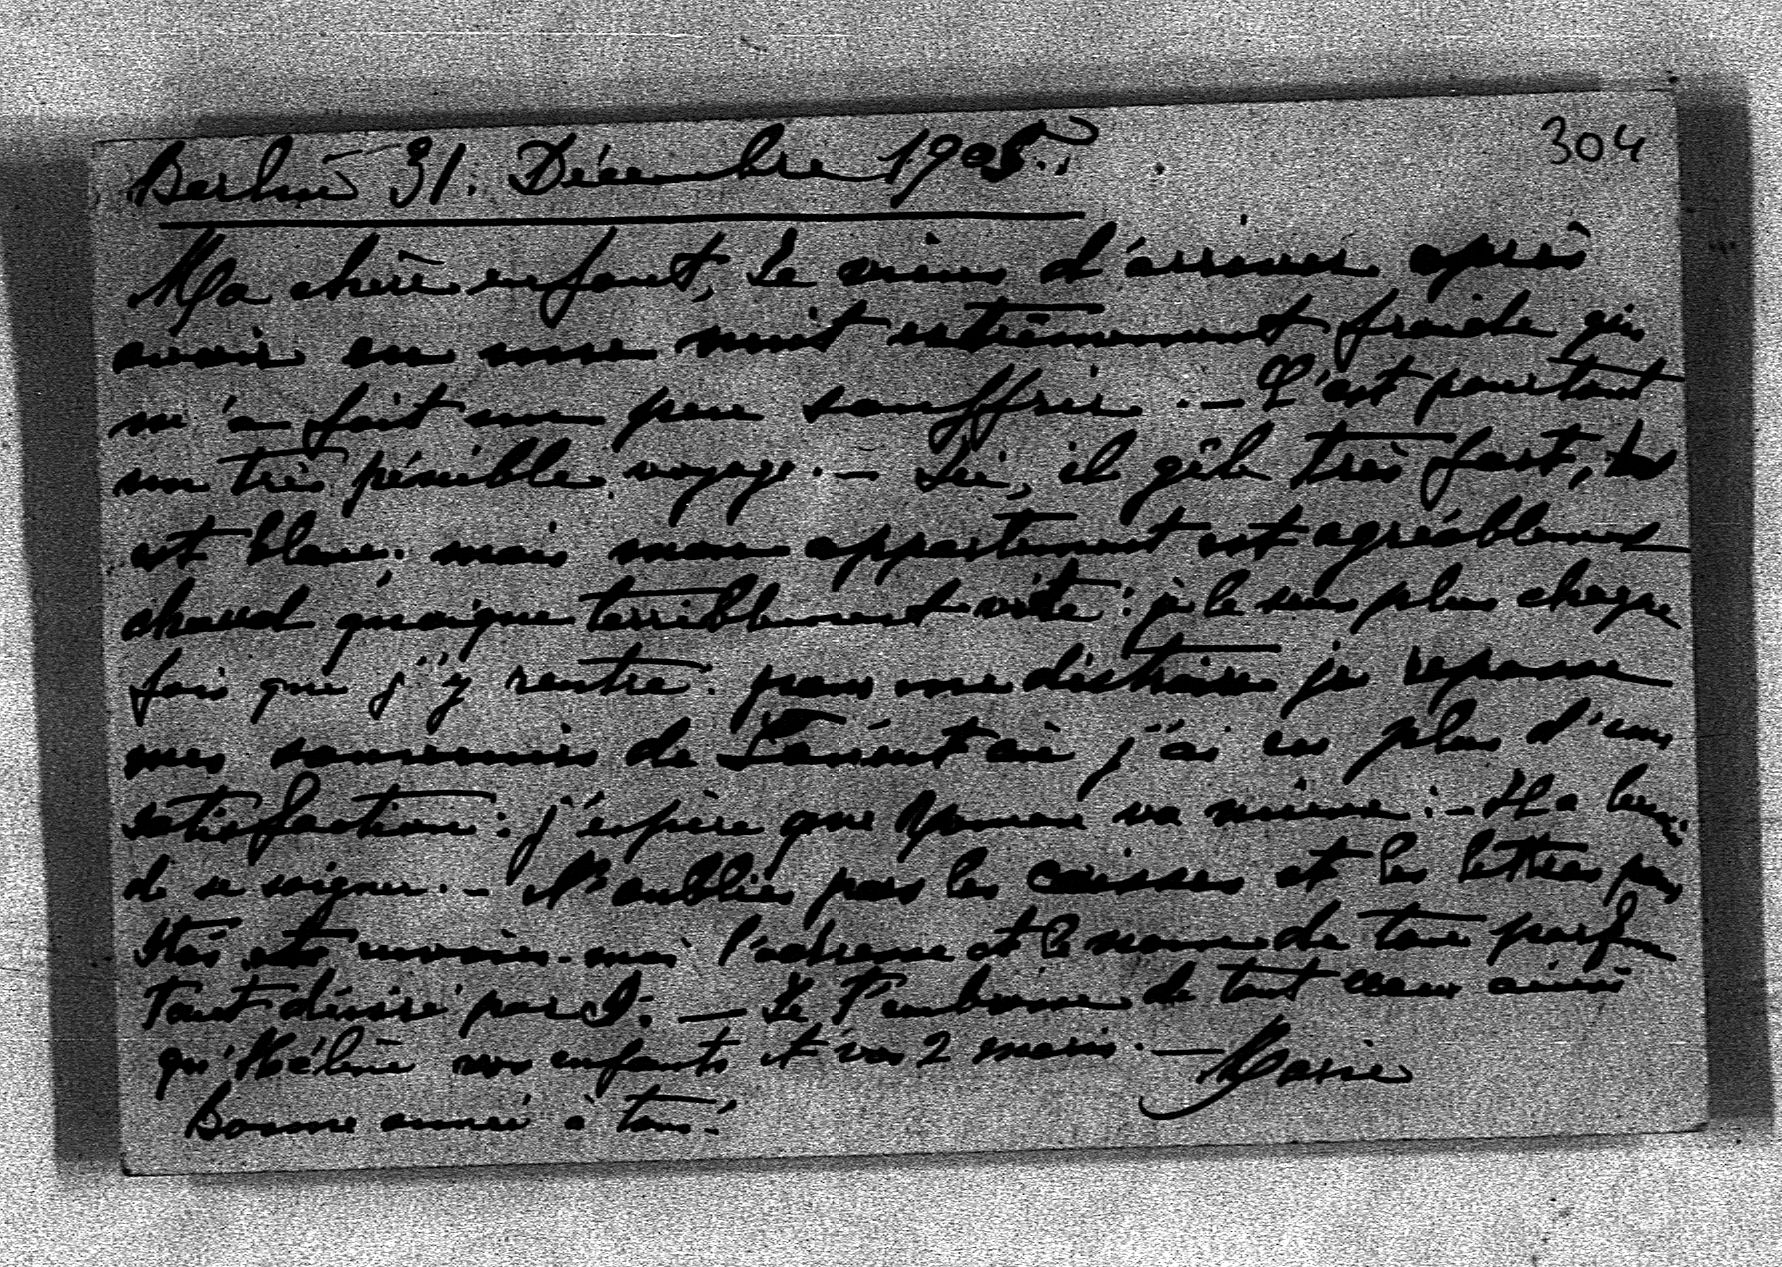 304
Berlin 31. Décembre 1905.
Ma chère enfant, Je viens d'arriver après
avoir eu une nuit extrêmement froide qui
m'a fait un peu souffrir. — C'est pourtant
un très pénible voyage. — Ici, il gèle très fort, tout
est blanc. mais mon appartement est agréablement
chaud quoique terriblement vide: je le sens plus chaque
fois que j'y rentre. pour me distraire je repasse
mes souvenirs de où j'ai eu plus d'une
satisfaction: j'espère que va mieux: — Il a besoin
de se soigner. — N'oublies pas les caisses et les lettres pour
envoies-moi l'adresse et le nom de ton parfum
tant désiré par — Je t'embrasse de tout cœur ainsi
qu'Hélène vos enfants et vos 2 maris. — Marie
Bonne année à tous!